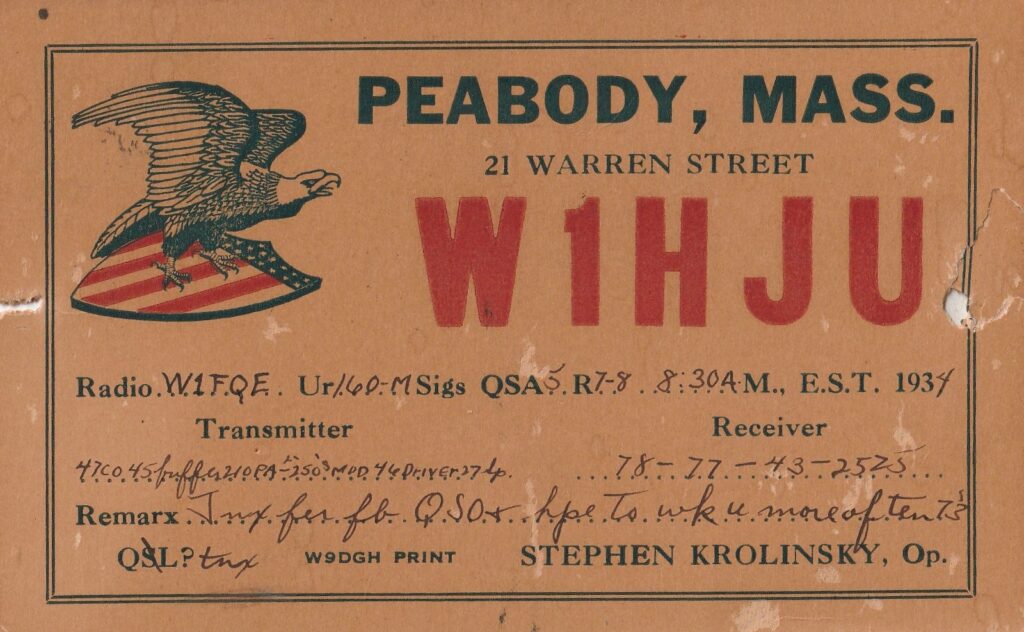 PEABODY, MASS.
21 WARREN STREET
W1HJU
Radio W1FQE. Ur 160-M Sigs QSA 5 R 7-8 8:30 A.M., E.S.T. 1934
Transmitter Receiver
47 CO. 45 buffer 210 PA- MOD 46 Driver 27 78-77-43-2525
Remarx Tnx fer fb QSO & hpe to wk u more often 73's
QSL? tnx W9DGH PRINT STEPHEN KROLINSKY, Op.